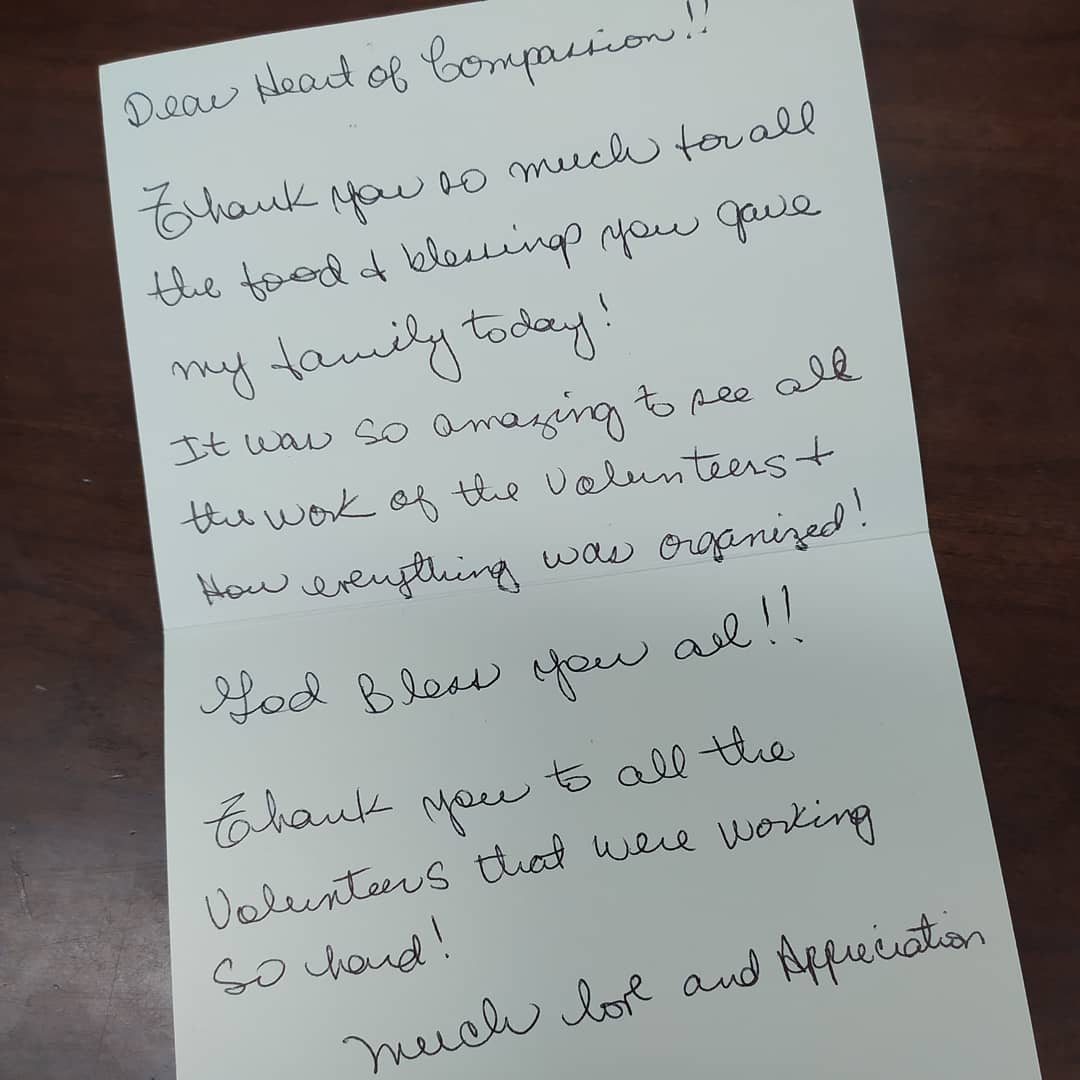 Dear Heart of Compassion!!
Thank you so much for all
the food & blessings you gave
my family today!
It was so amazing to see all
the work of the Volunteers +
How everything was organized!
God Bless you all!!
Thank you to all the
Volunteers that were working
so hard!
Much love and Appreciation